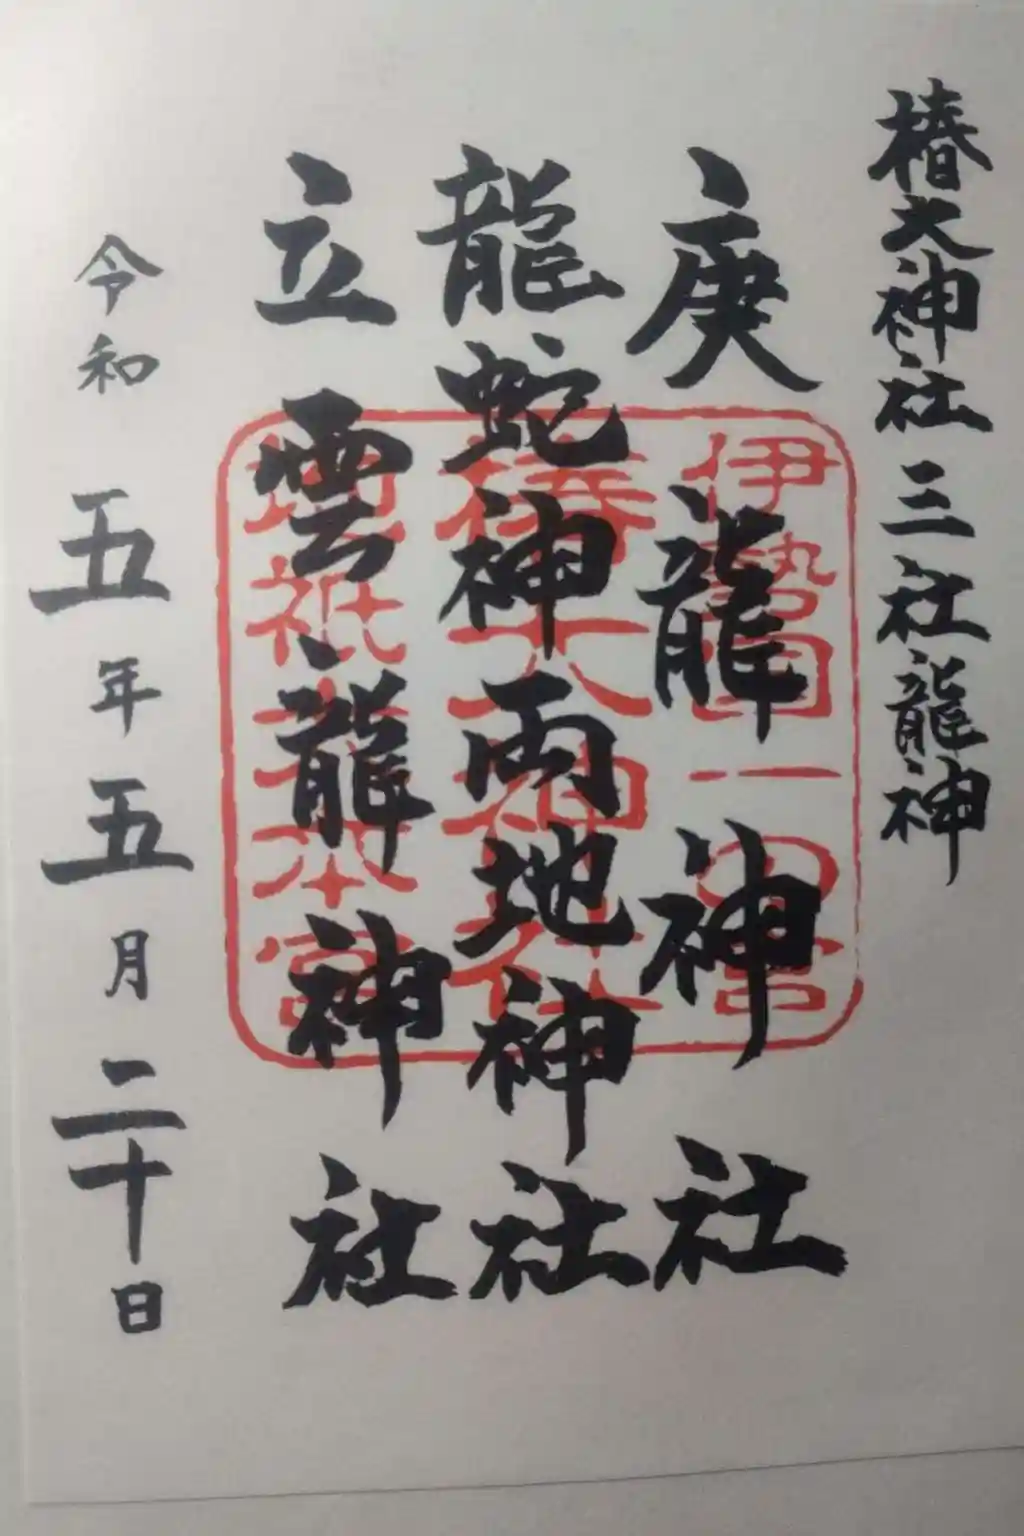 椿大神社 三社龍神
庚龍神社
龍蛇神両地神社
立雲龍神社
令和五年五月二十日
伊勢国一の宮
椿大神社
地祇大本宮